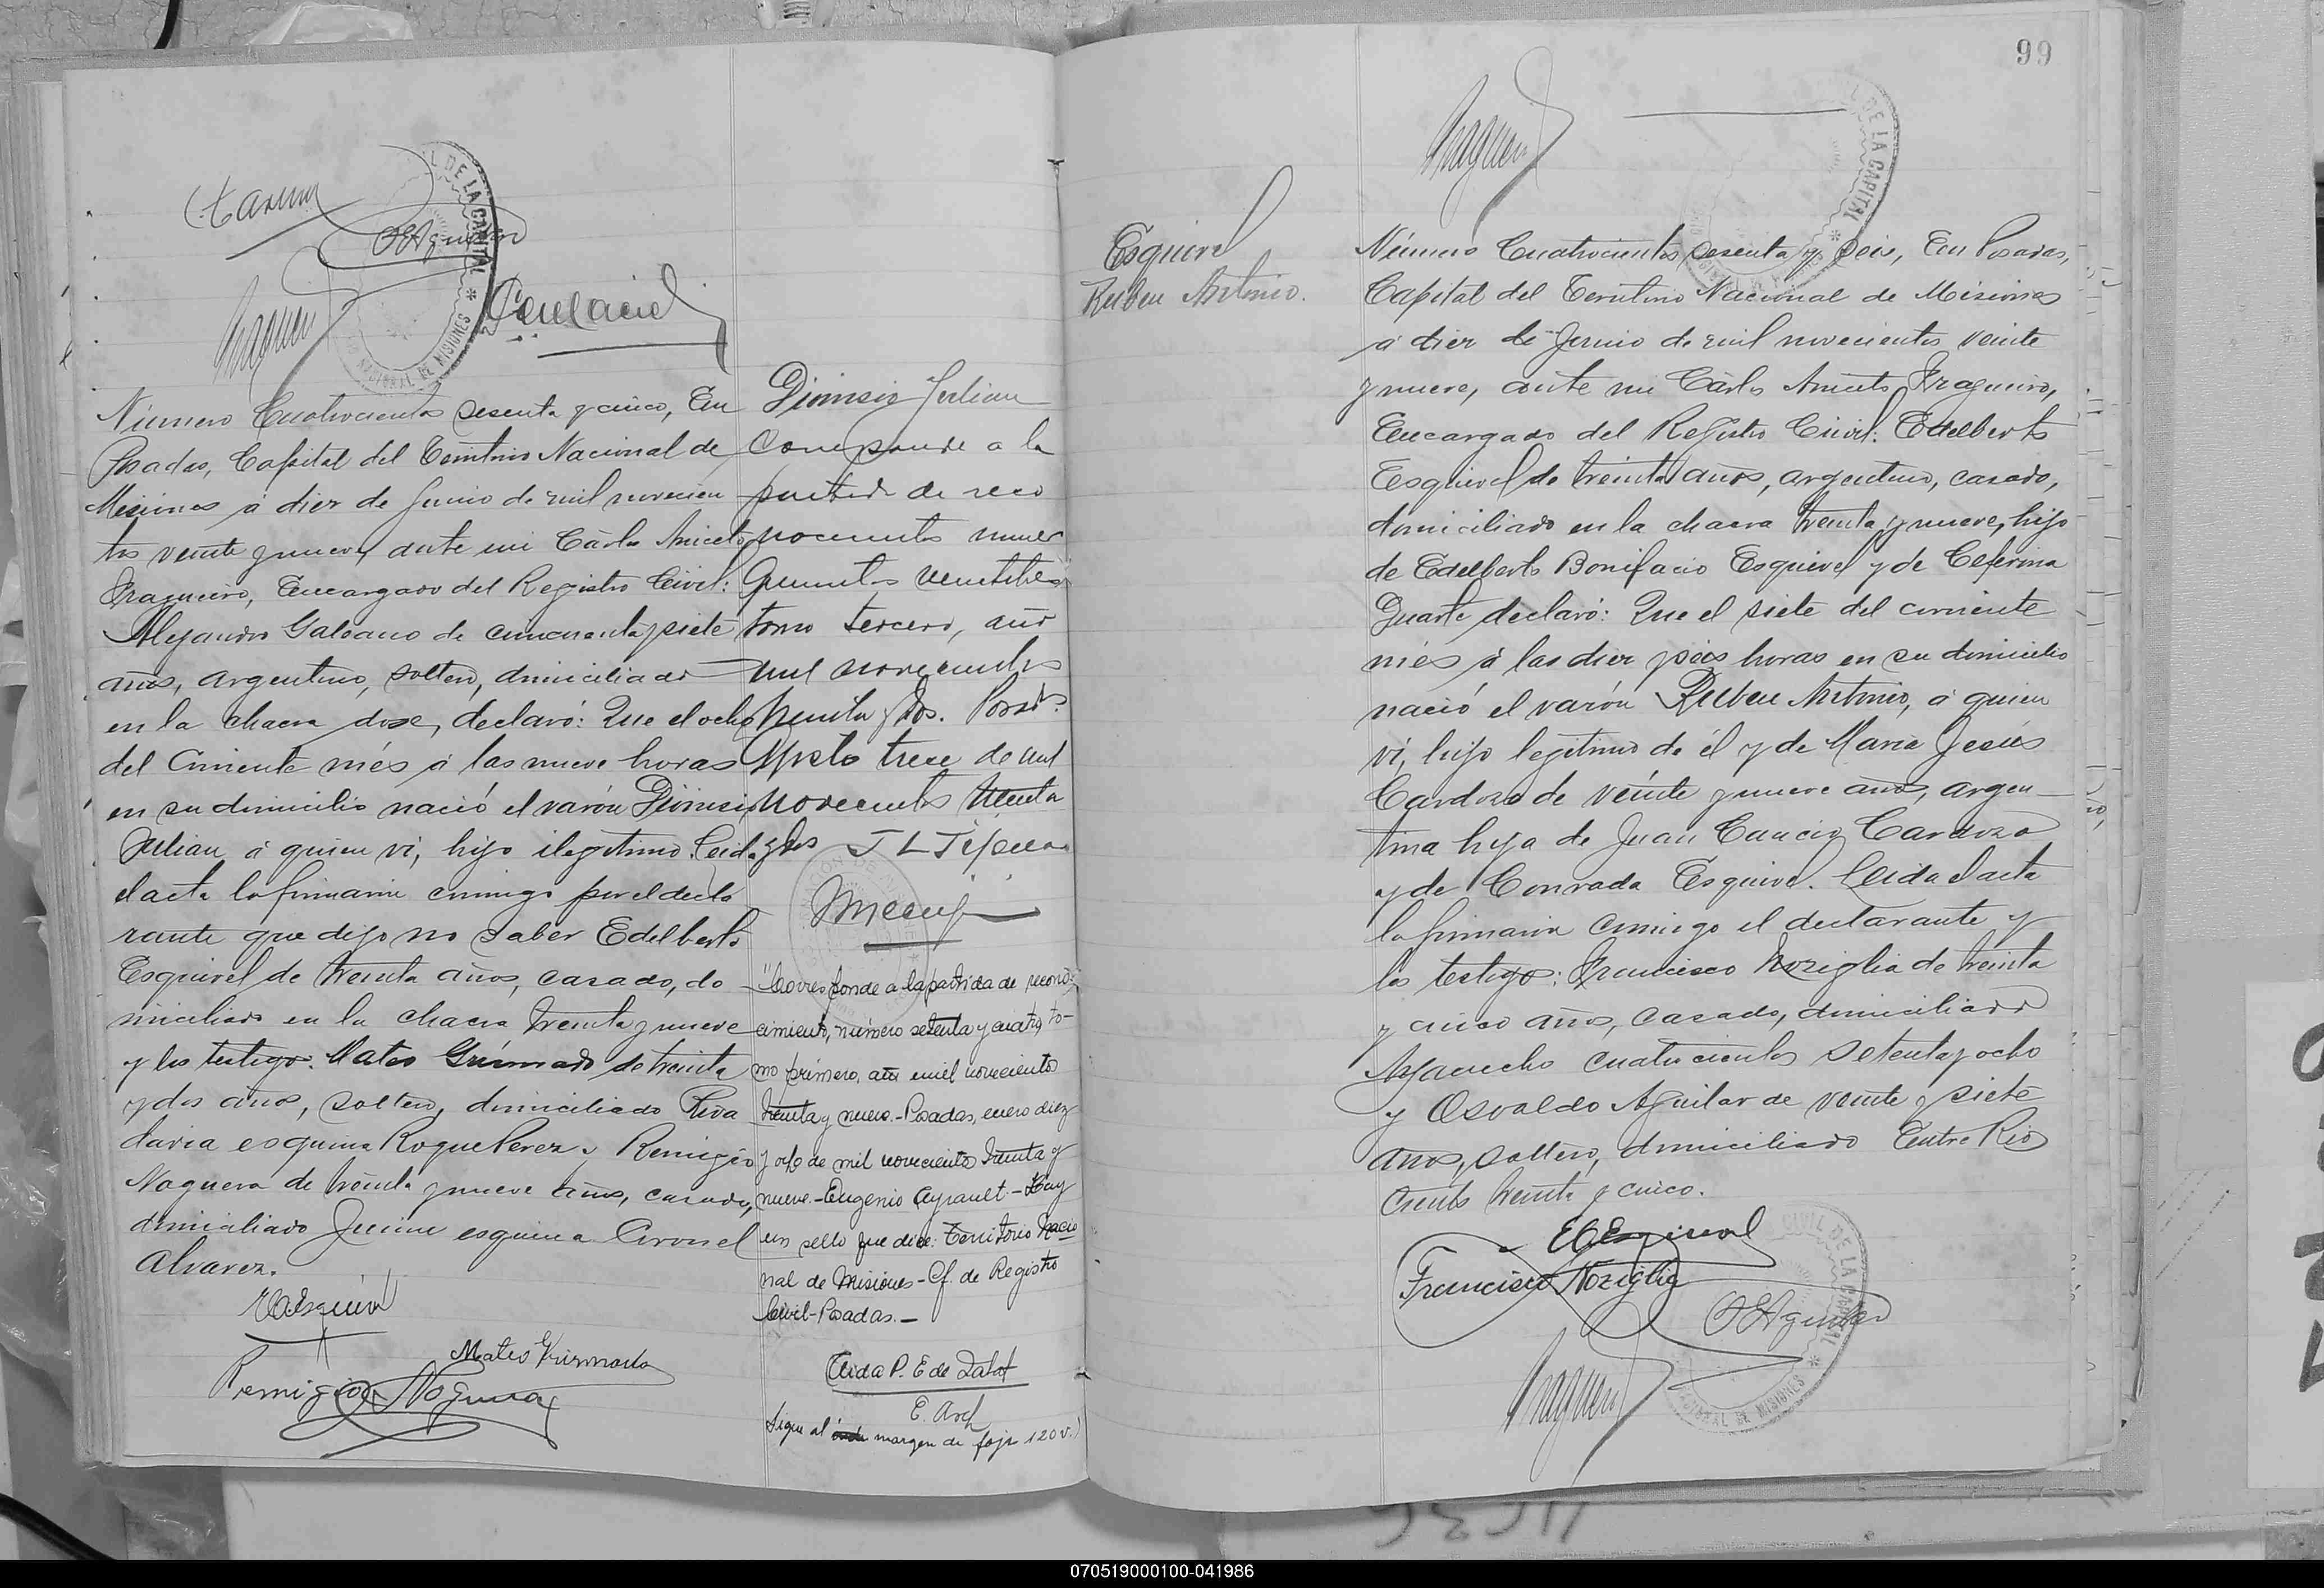 Número Cuatrocientos sesenta y cinco, En
Posadas, Capital del Territorio Nacional de
Misiones á diez de Junio de mil novecien
tos veinte y nueve, ante mi Cárlos Aniceto
Fragueiro, Encargado del Registro Civil:
Alejandro Galeano de cincuenta y siete
años, argentino, soltero, domiciliado
en la chacra doce, declaró: Que el ocho
del corriente més á las nueve horas
en su domicilio nació el varón Dionisio
Julian á quien vi, hijo ilegitimo. Leida
el acta la firmaron conmigo por el decla
rante que dijo no saber Edelberto
Esquivel de treinta años, casado, do
miciliado en la chacra treinta y nueve
y los testigos: Mateo Grismado de treinta
y dos años, soltero, domiciliado Riva
davia esquina Roque Perez y Remigio
Noguera de treinta y nueve años, casado,
domiciliado Junin esquina Coronel
Alvarez.
Mateo Grismado
Remigio Noguera
Dionisio Julian
Corresponde a la
partida de reco
nocimiento numero
Quinientos veintitres
tomo tercero, año
mil novecientos
treinta y dos. Posadas
Agosto trece de mil
novecientos treinta
y dos
"Corresponde a la partida de recono-
cimiento, número setenta y cuatro, to-
mo primero, año mil novecientos
treinta y nueve.-Posadas, enero diez
y ocho de mil novecientos treinta y
nueve.-Eugenio Ayrault-Hay
un sello que dice: Territorio Nacio
nal de Misiones-Of. de Registro
Civil-Posadas.-
Aida P. E de
E. Arch
Sigue al margen de foja 120 v.)
99
Esquivel
Ruben Antonio.
Número Cuatrocientos sesenta y seis, En Posadas,
Capital del Territorio Nacional de Misiones
á diez de Junio de mil novecientos veinte
y nueve, ante mi Cárlos Aniceto Fragueiro,
Encargado del Registro Civil: Edelberto
Esquivel de treinta años, argentino, casado,
domiciliado en la chacra treinta y nueve, hijo
de Edelberto Bonifacio Esquivel y de Ceferina
Duarte declaró: Que el siete del corriente
més á las diez y seis horas en su domicilio
nació el varón Ruben Antonio, á quien
vi, hijo legítimo de él y de Maria Jesús
Cardozo de veinte y nueve años, argen-
tina hija de Juan Cancio Cardozo
y de Conrada Esquivel. Leida el acta
la firmaron conmigo el declarante y
los testigos: Francisco Noziglia de treinta
y cinco años, casado, domiciliado
Ayacucho cuatrocientos setenta y ocho
y Osvaldo Aguilar de veinte y siete
años, soltero, domiciliado Entre Rios
ciento treinta y cinco.
E Esquivel
Francisco Noziglia
070519000100-041986